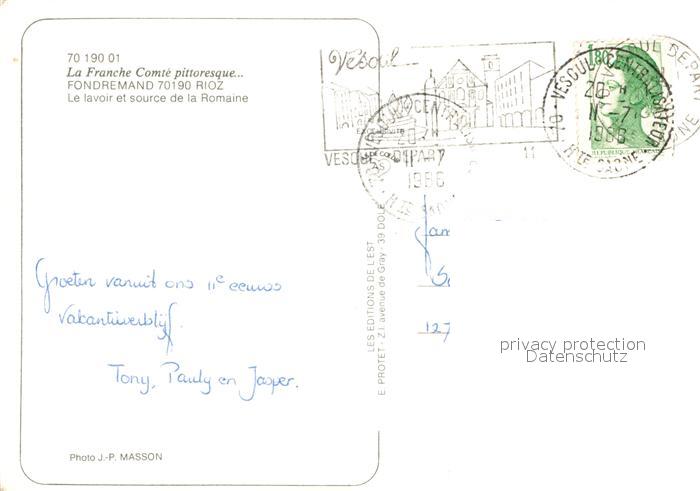 70 190 01
La Franche Comté pittoresque...
FONDREMAND 70190 RIOZ
Le lavoir et source de la Romaine
Groeten vanuit ons 11e eeuws
vakantieverblijf.
Tony, Pauly en Jasper.
Photo J.-P. MASSON
LES EDITIONS DE L'EST
E. PROTET - Z.I. avenue de Gray - 39 DOLE
Vesoul
VESOUL DEPART
20 H
11 - 7
1986
Hte SAONE
1,80
VESOUL CENTRALISATEUR
20 H
11 - 7
1986
Hte SAONE
70
127
privacy protection
Datenschutz